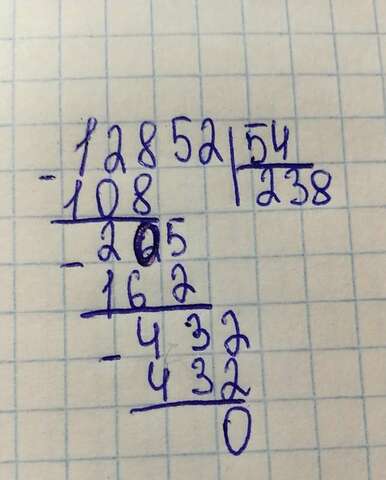 12852 54
- 108 238
205
- 162
432
- 432
0